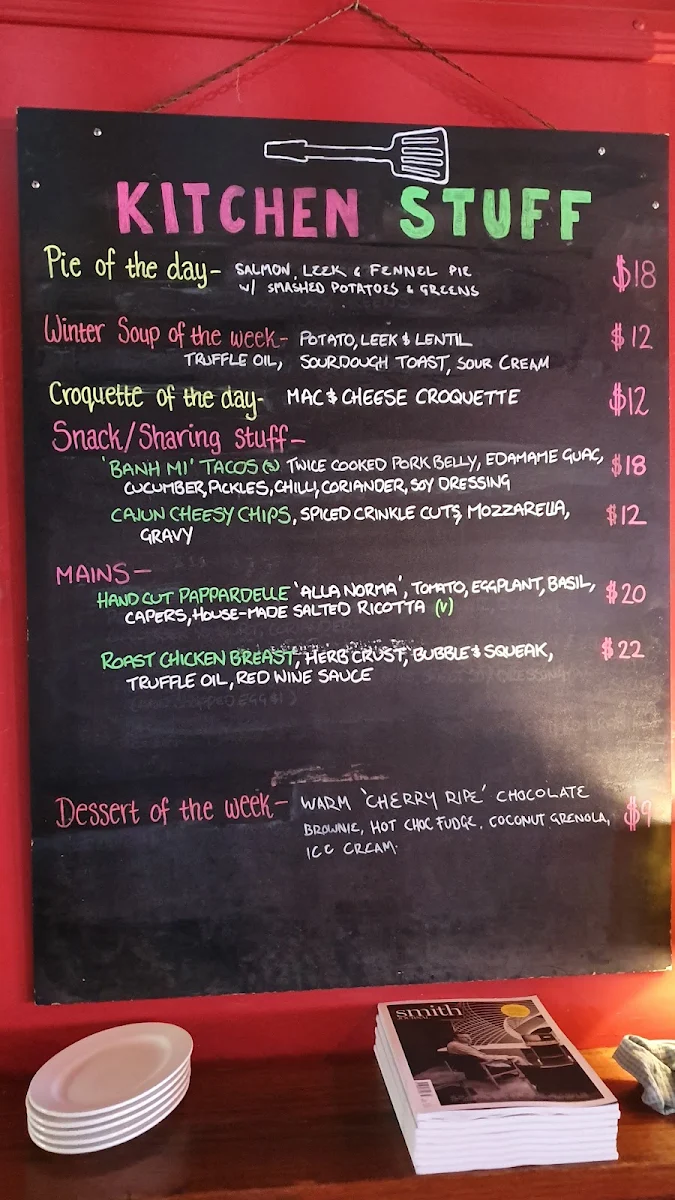 KITCHEN STUFF
Pie of the day- SALMON, LEEK & FENNEL PIE $18
w/ SMASHED POTATOES & GREENS
Winter Soup of the week- POTATO, LEEK & LENTIL $12
TRUFFLE OIL, SOURDOUGH TOAST, SOUR CREAM
Croquette of the day- MAC & CHEESE CROQUETTE $12
Snack/Sharing stuff-
'BANH MI' TACOS (2) TWICE COOKED PORK BELLY, EDAMAME GUAC, $18
CUCUMBER, PICKLES, CHILLI, CORIANDER, SOY DRESSING
CAJUN CHEESY CHIPS, SPICED CRINKLE CUTS, MOZZARELLA, $12
GRAVY
MAINS-
HAND CUT PAPPARDELLE 'ALLA NORMA', TOMATO, EGGPLANT, BASIL, $20
CAPERS, HOUSE-MADE SALTED RICOTTA (V)
ROAST CHICKEN BREAST, HERB CRUST, BUBBLE & SQUEAK, $22
TRUFFLE OIL, RED WINE SAUCE
Dessert of the week- WARM 'CHERRY RIPE' CHOCOLATE $9
BROWNIE, HOT CHOC FUDGE, COCONUT GRENOLA,
ICE CREAM.
smith